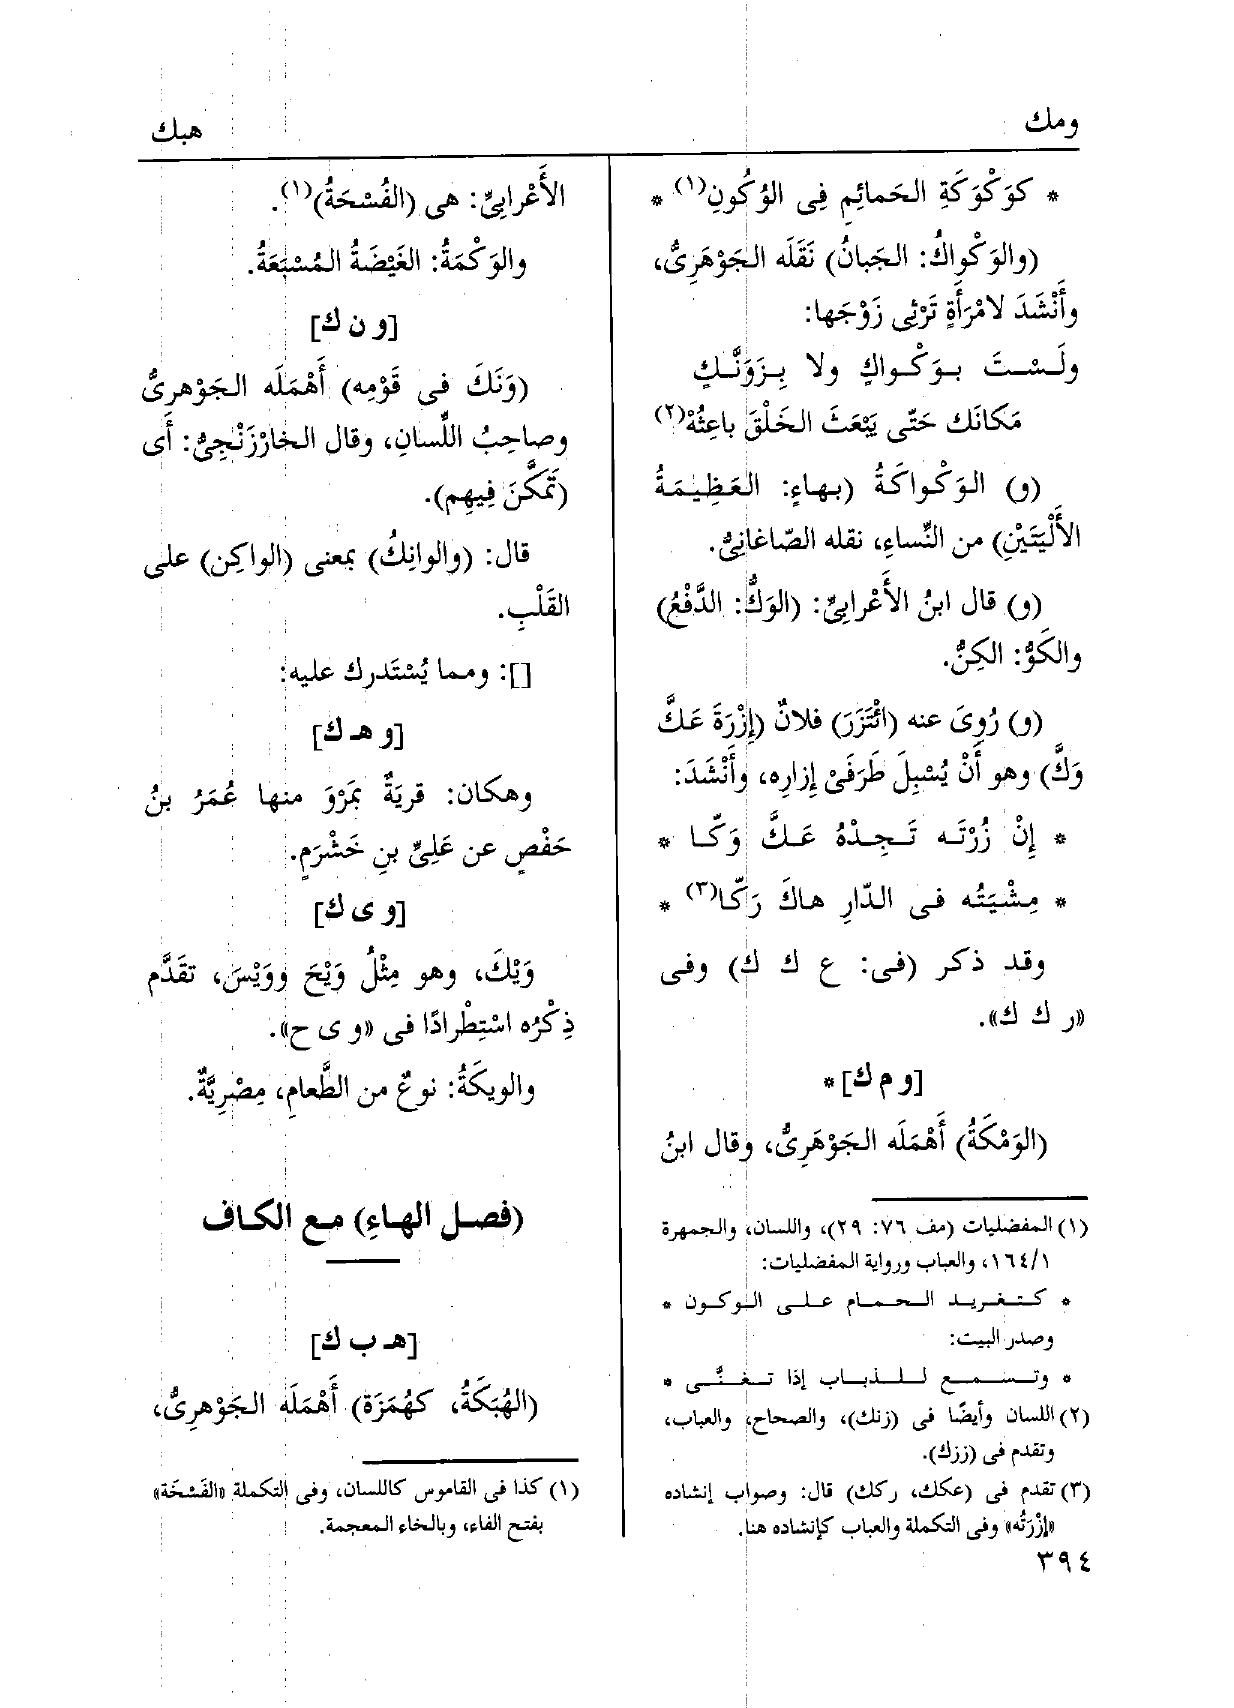 ومك
هبك
* كَوَكْوَكَةِ الحَمائِمِ فِى الوُكُونِ(١) *
(والوَكْواكُ: الجَبانُ) نَقَلَه الجَوْهَرِىُّ،
وأَنْشَدَ لامْرَأَةٍ تَرْثِى زَوْجَها:
ولَسْتَ بوَكْواكٍ ولا بِزَوَنَّكٍ
مَكانَك حَتّى يَبْعَثَ الخَلْقَ باعِثُهْ(٢)
(و) الوَكْواكَةُ (بهاءٍ: العَظِيمَةُ
الأَلْيَتَيْنِ) من النِّساءِ، نقله الصّاغانِىُّ.
(و) قال ابنُ الأَعْرابِىِّ: (الوَكُّ: الدَّفْعُ)
والكَوُّ: الكِنُّ.
(و) رُوِىَ عنه (ائْتَزَرَ) فلانٌ (إِزْرَةَ عَكَّ
وَكَّ) وهو أَنْ يُسْبِلَ طَرَفَىْ إِزارِه، وأَنْشَدَ:
* إِنْ زُرْتَه تَجِدْهُ عَكَّ وَكّا *
* مِشْيَتُه فى الدّارِ هاكَ رَكّا(٣) *
وقد ذكر (فى: ع ك ك) وفى
«ر ك ك».
[و م ك] *
(الوَمْكَةُ) أَهْمَلَه الجَوْهَرِىُّ، وقال ابنُ
(١) المفضليات (مف ٧٦: ٢٩)، واللسان، والجمهرة
١٦٤/١، والعباب ورواية المفضليات:
* كتغريد الحمام على الوكون *
وصدر البيت:
* وتسمع للذباب إذا تغنَّى *
(٢) اللسان وأيضًا فى (زنك)، والصحاح، والعباب،
وتقدم فى (زرك).
(٣) تقدم فى (عكك، ركك) قال: وصواب إنشاده
«إزْرَتُه» وفى التكملة والعباب كإنشاده هنا.
الأَعْرابِىِّ: هى (الفُسْحَةُ)(١).
والوَكْمَةُ: الغَيْضَةُ المُسْبَعَةُ.
[و ن ك]
(وَنَكَ فى قَوْمِه) أَهْمَلَه الجَوْهرِىُّ
وصاحِبُ اللِّسانِ، وقال الخارْزَنْجِىُّ: أَى
(تَمَكَّنَ فِيهِم).
قال: (والوانِكُ) بمعنى (الواكِن) على
القَلْبِ.
[]: ومما يُسْتَدرك عليه:
[و هـ ك]
وهكان: قريَةٌ بمَرْوَ منها عُمَرُ بنُ
حَفْصٍ عن عَلِىِّ بنِ خَشْرَمٍ.
[و ى ك]
وَيْكَ، وهو مِثْلُ وَيْحَ ووَيْسَ، تقَدَّم
ذِكْرُه اسْتِطْرادًا فى «و ى ح».
والويكَةُ: نوعٌ من الطَّعامِ، مِصْرِيَّةٌ.
(فصل الهاءِ) مع الكاف
[هـ ب ك]
(الهُبَكَةُ، كهُمَزَة) أَهْمَلَه الجَوْهرِىُّ،
(١) كذا فى القاموس كاللسان، وفى التكملة «الفَسْخَة»
بفتح الفاء، وبالخاء المعجمة.
٣٩٤